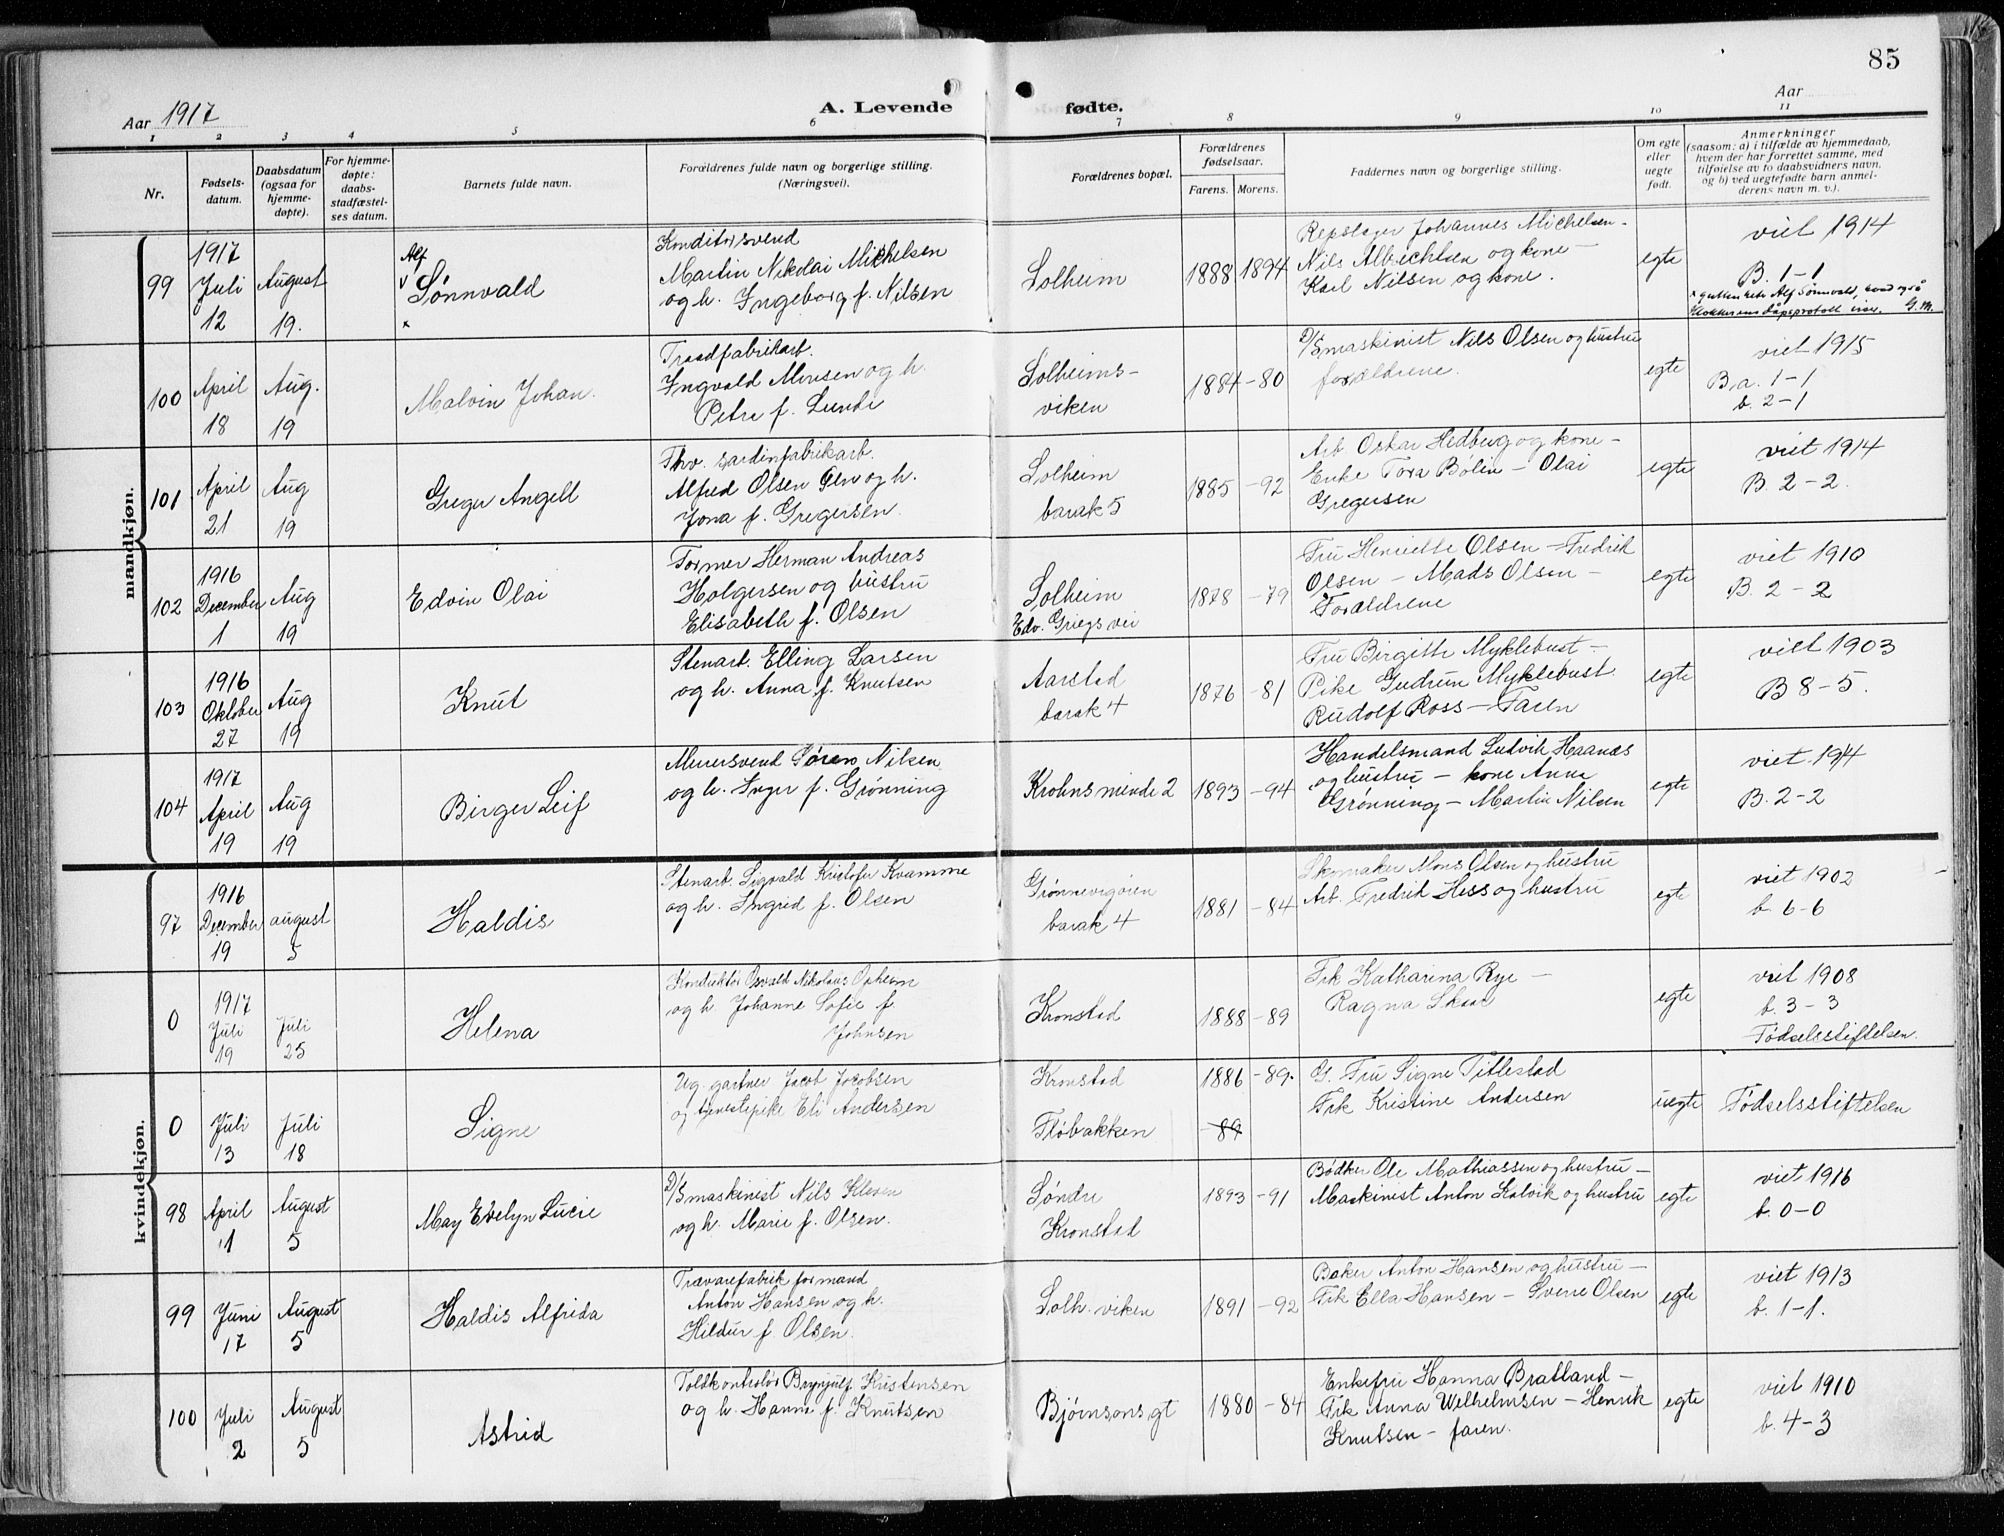 85
Aar 1917
A. Levende
fødte.
Aar
1 2 3 4 5 6 7 8 9 10 11
Nr.
Fødsels-
datum.
Daabsdatum
(ogsaa for
hjemme-
døpte).
For hjemme-
døpte:
daabs-
stadfæstel-
ses datum.
Barnets fulde navn.
Forældrenes fulde navn og borgerlige stilling.
(Næringsvei).
Forældrenes bopæl.
Forældrenes
fødselsaar.
Farens. Morens.
Faddernes navn og borgerlige stilling.
Om egte
eller
uegte
født.
Anmerkninger
(saasom: a) i tilfælde av hjemmedaab,
hvem der har forrettet samme, med
tilføielse av to daabsvidners navn,
og b) ved uegtefødte barn anmel-
derens navn m. v.).
mandkjøn.
99
1917
Juli
12
August
19.
Alf
v
Sønnvald
x
Konditorsvend
Martin Nikolai Michelsen
og h. Ingeborg f. Nilsen
Solheim
1888 1894
Repslager Johannes Michelsen -
Nils Albrechtsen og kone -
Karl Nilsen og kone.
egte
viet 1914
B. 1-1
x gutten hete Alf Sønnvald,
G. M.
100
April
18
Aug.
19
Malvin Johan.
Traadfabrikarb.
Ingvald Monsen og h.
Petra f. Lunde
Solheims-
viken
1884 -80
D/S maskinist Nils Olsen og hustru
forældrene.
egte
viet 1915
B a. 1-1
b. 2-1
101
April
21
Aug
19
Greger Angell
Fhv. sardinfabrikarb.
Alfred Olsen og h.
Jona f. Gregersen.
Solheim
barak 5
1885 -92
Arb. Oskar Hedberg og kone -
Enke Tora Bølin - Olai
Gregersen
egte
viet 1914
B. 2-2.
102
1916
December
1
Aug
19
Edvin Olai
Former Herman Andreas
Holgersen og hustru
Elisabeth f. Olsen
Solheim
Edv. Griegs vei
1878 -79
Fru Henriette Olsen - Fredrik
Olsen - Mads Olsen -
Forældrene
egte
viet 1910
B. 2-2
103
1916
Oktober
27
Aug
19
Knut
Stenarb. Elling Larsen
og h. Anna f. Knutsen
Aarstad
barak 4
1876 -81
Fru Birgitte Myklebust -
Pike Gudrun Myklebust.
Rudolf Ross - Faren
egte
viet 1903
B 8-5.
104
1917
April
19
Aug
19
Birger Leif
Murersvend Søren Nilsen
og h. Inger f. Grønning
Krohnsminde 2
1893 -94
Handelsmand Ludvik Haanæs
og hustru - kone Anna
Grønning - Martin Nilsen
egte
viet 1914
B. 2-2
kvindekjøn.
97
1916
December
19
august
5
Haldis
Stenarb. Sigvald Kristofer Kvamme
og h. Ingrid f. Olsen
Grønnevigøien
barak 4
1881 -84
Skomaker Mons Olsen og hustru
Arb. Fredrik Hess og hustru
egte
viet 1902
b. 6-6
0
1917
Juli
19
Juli
25
Helena
Konduktør Osvald Nikolaus Opheim
og h. Johanne Sofie f.
Johnsen
Kronstad
1888 -89
Frk Katharina Rye -
Ragna Skaar
egte
viet 1908
b. 3-3
Fødselsstiftelsen.
0
Juli
13
Juli
18
Signe
Ug. gartner Jacob Jacobsen
og tjenestepike Eli Andersen
Kronstad
Fløbakken
1886 -89.
-89
G. Fru Signe Titlestad
Frk Kristine Andersen
uegte
Fødselsstiftelsen
98
April
11
August
5
May Evelyn Lucie
D/S maskinist Nils Kleven
og h. Marie f. Olsen.
Søndre
Kronstad
1893 -91
Bødker Ole Mathiassen og hustru -
Maskinist Anton Kalvik og hustru
egte
viet 1916
b. 0-0
99
Juni
17
August
5
Haldis Alfrida
Trævarefabrik formand
Anton Hansen og h.
Hildur f. Olsen.
Solh. viken
1891 -92
Baker Anton Hansen og hustru -
Frk Ella Hansen - Sverre Olsen
egte
viet 1913
b. 1-1.
100
Juli
2
August
5
Astrid
Toldkontrolør Brynjulf Kristensen
og h. Hanna f. Knutsen
Bjørnsons gt
1880 -84
Enkefru Hanna Bratland -
Frk Anna Wilhelmsen - Henrik
Knutsen - faren.
egte
viet 1910
b. 4-3